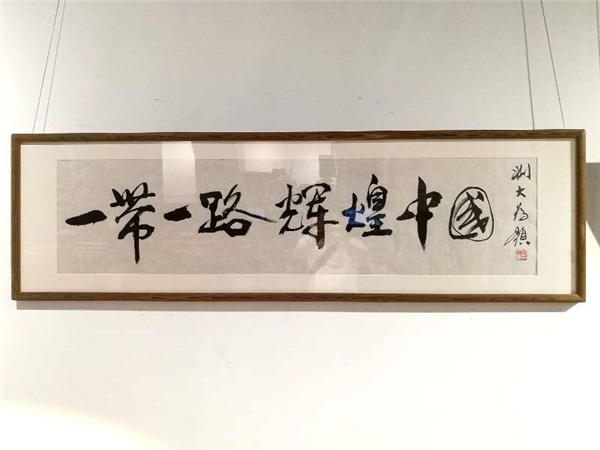 一带一路 辉煌中国
刘大为题